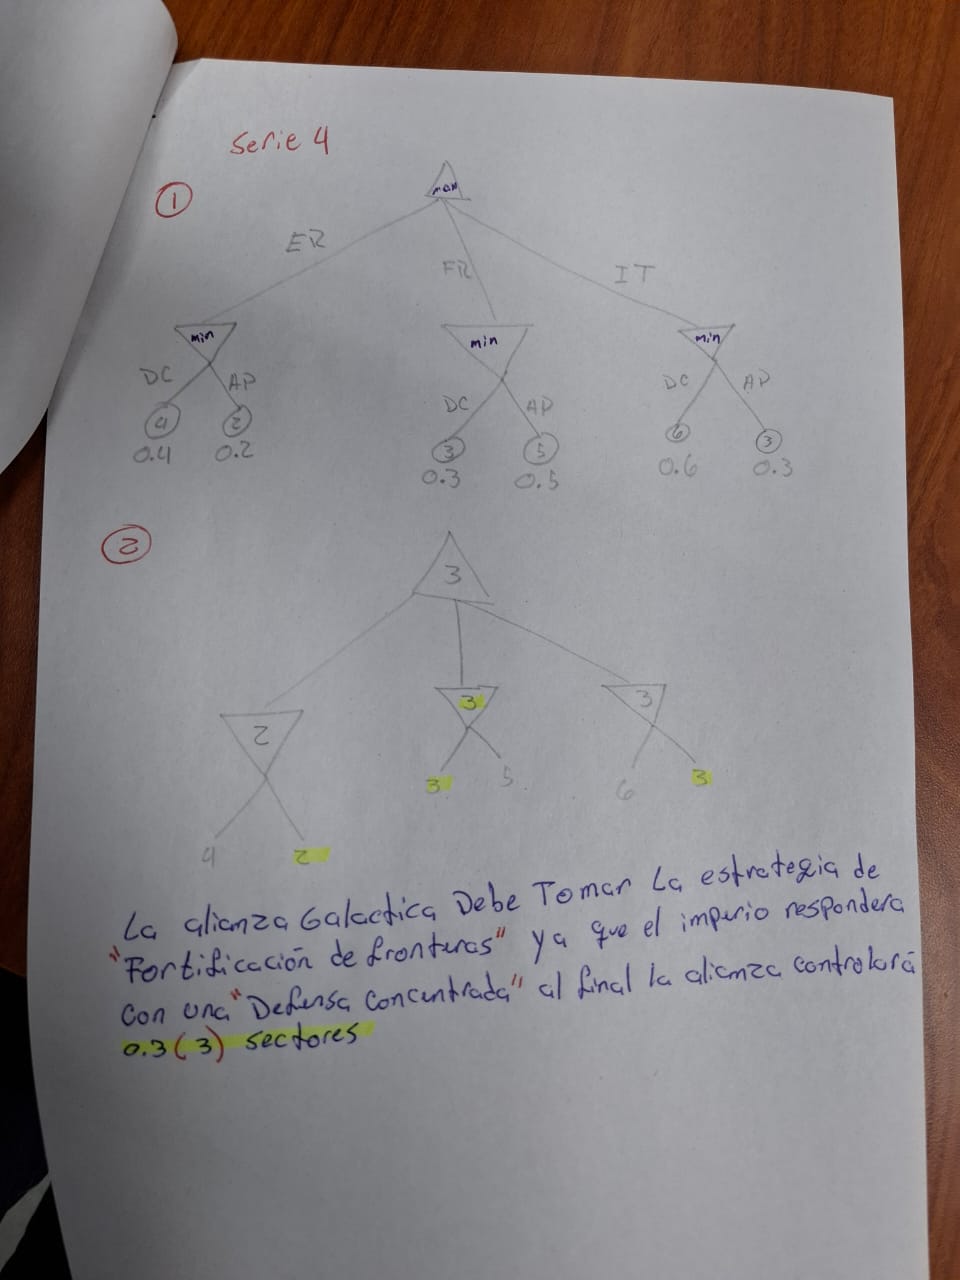 Serie 4
1
max
ER
FR
IT
min
min
min
DC AP
DC AP
DC AP
4 2
3 5
6 3
0.4 0.2
0.3 0.5
0.6 0.3
2
3
2
3
3
3 5
6 3
4 2
La alianza Galactica Debe Tomar La estrategia de
"Fortificación de fronteras" ya que el imperio respondera
con una "Defensa Concentrada" al final la alianza controlará
0.3(3) sectores